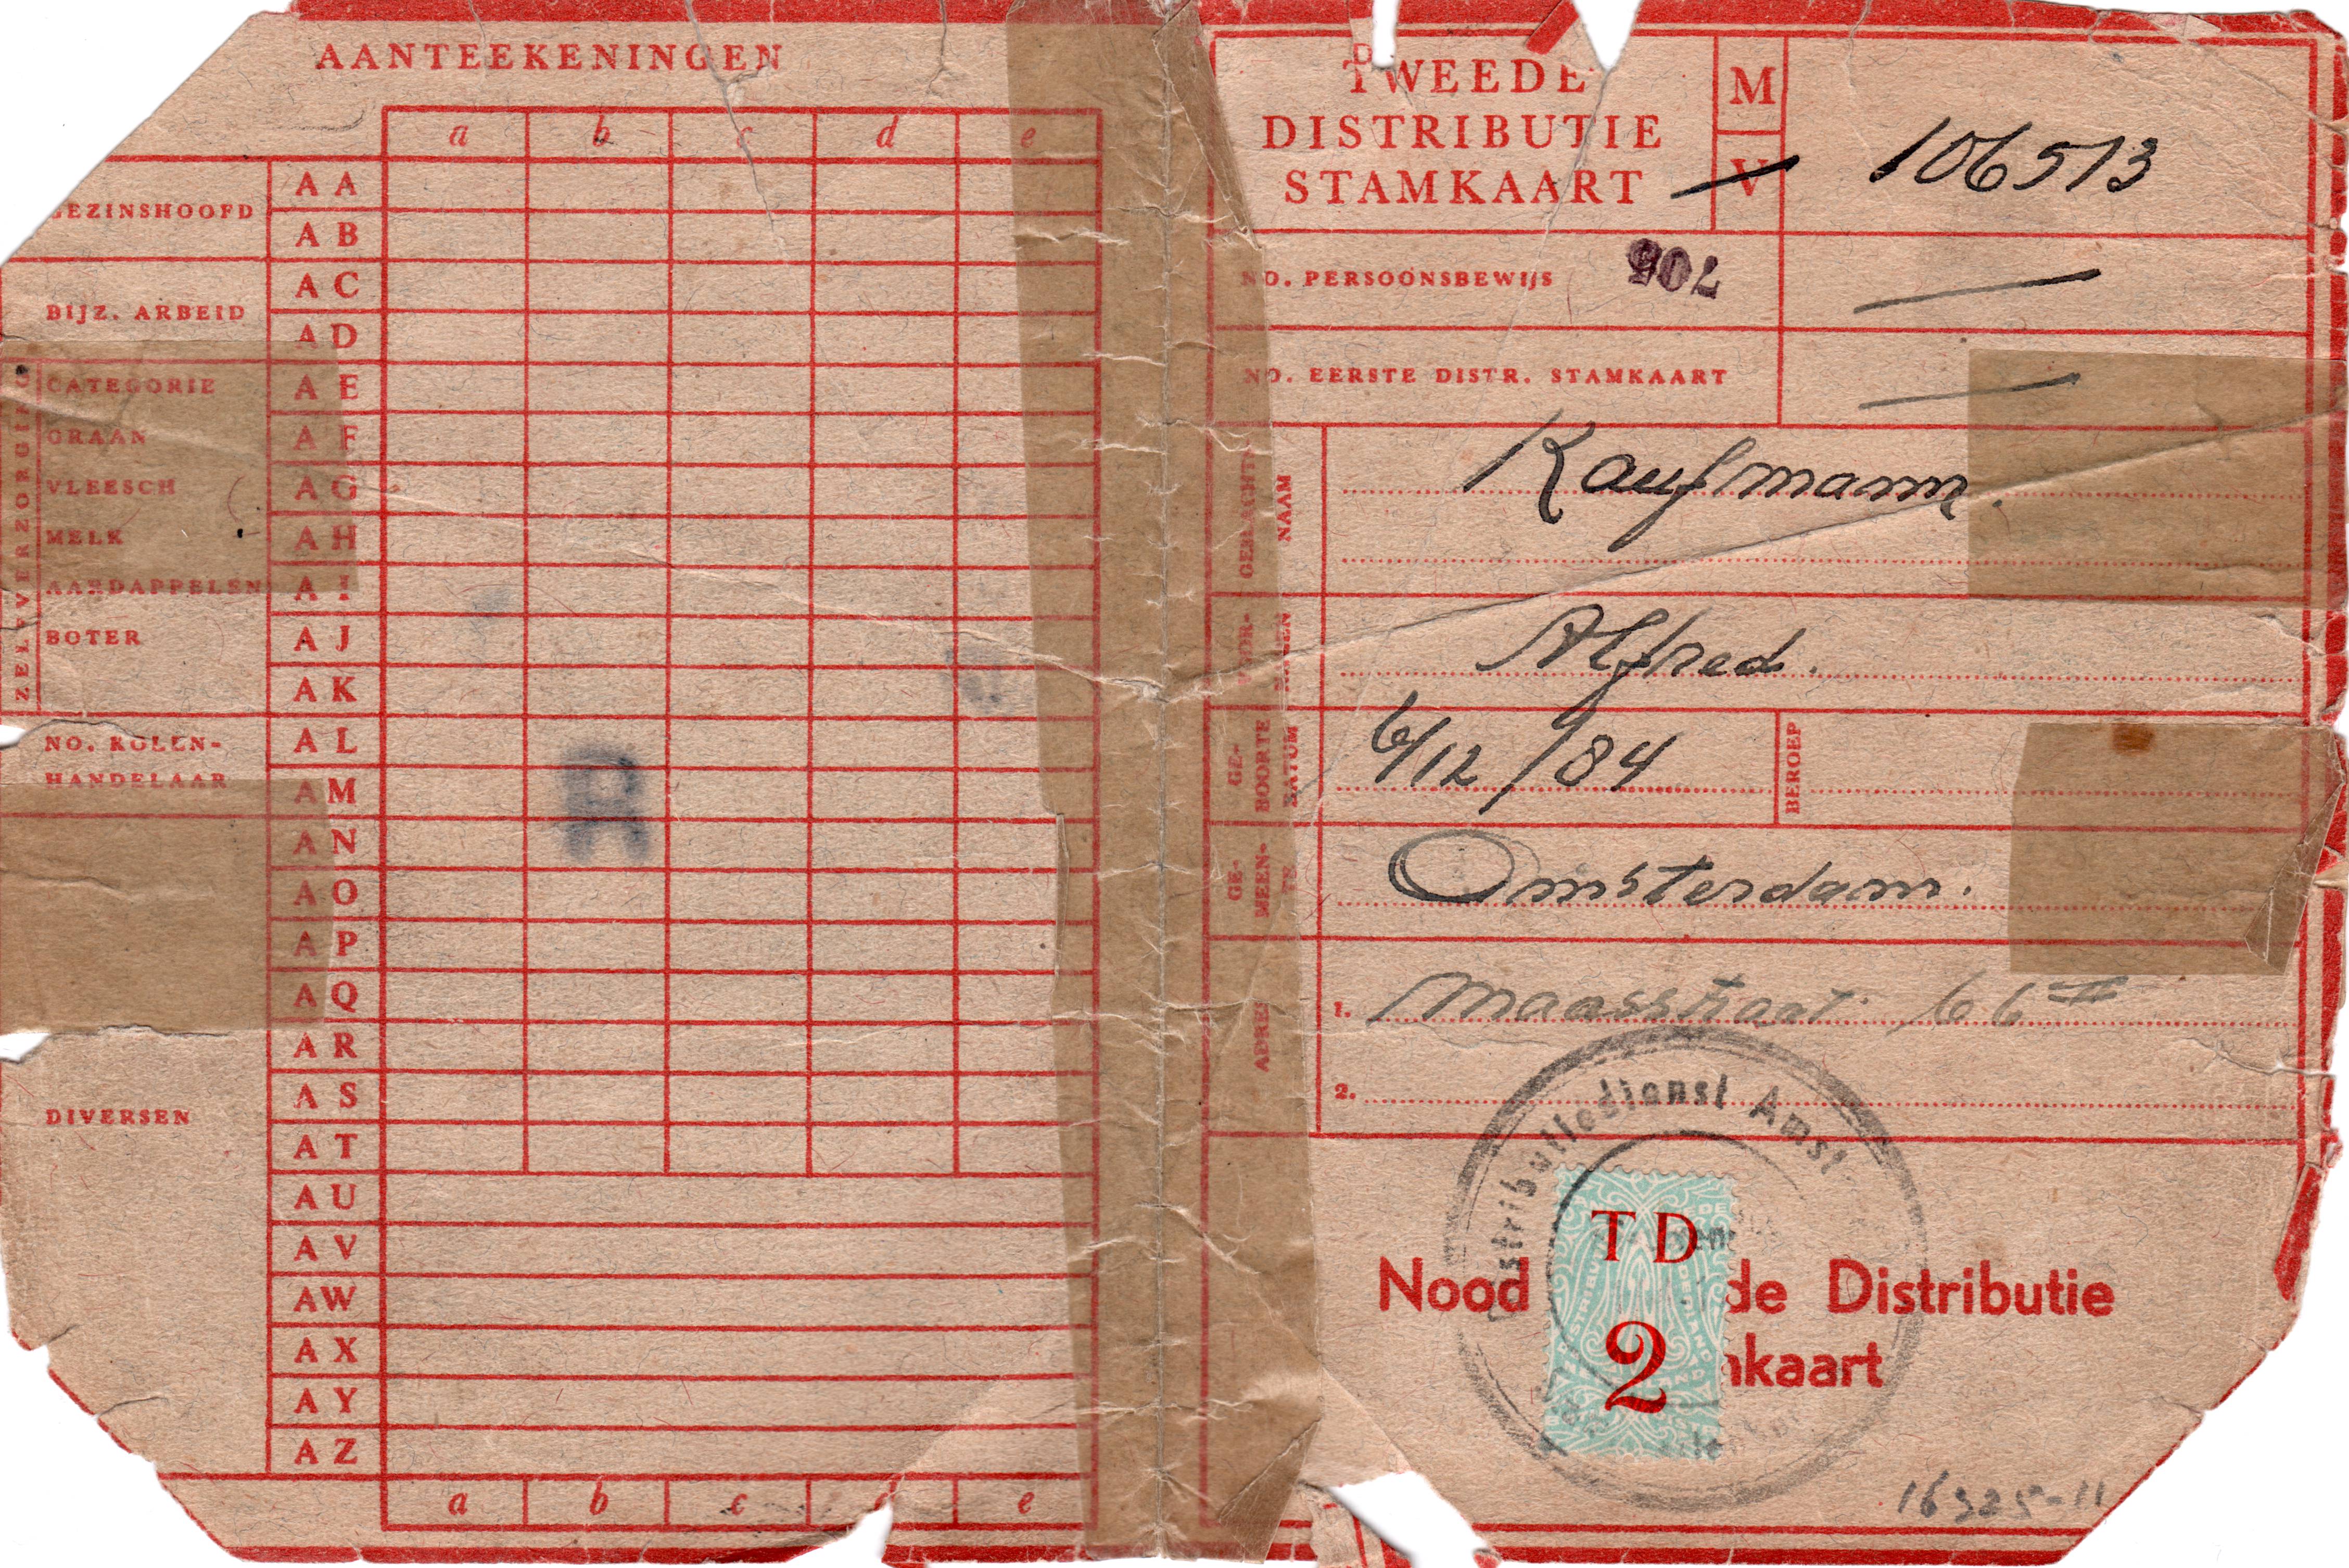 AANTEEKENINGEN
a b c d e
GEZINSHOOFD
AA
AB
BIJZ. ARBEID
AC
AD
ZELFVERZORGING
CATEGORIE AE
GRAAN AF
VLEESCH AG
MELK AH
AARDAPPELEN AI
BOTER AJ
AK
NO. KOLEN- AL
HANDELAAR AM
R
AN
AO
AP
AQ
AR
AS
DIVERSEN
AT
AU
AV
AW
AX
AY
AZ
a b c d e
TWEEDE
DISTRIBUTIE
STAMKAART
M
V
106513
NO. PERSOONSBEWIJS 705
NO. EERSTE DISTR. STAMKAART
GESLACHTS NAAM
Kaufmann.
VOOR- NAMEN
Alfred.
GE- BOORTE DATUM
6/12/84
BEROEP
GE- MEEN- TE
Amsterdam.
ADRES
1. Maasstraat 66 II
2.
Distributiedienst Amst
TD
2
Nood de Distributie
mkaart
16325-11